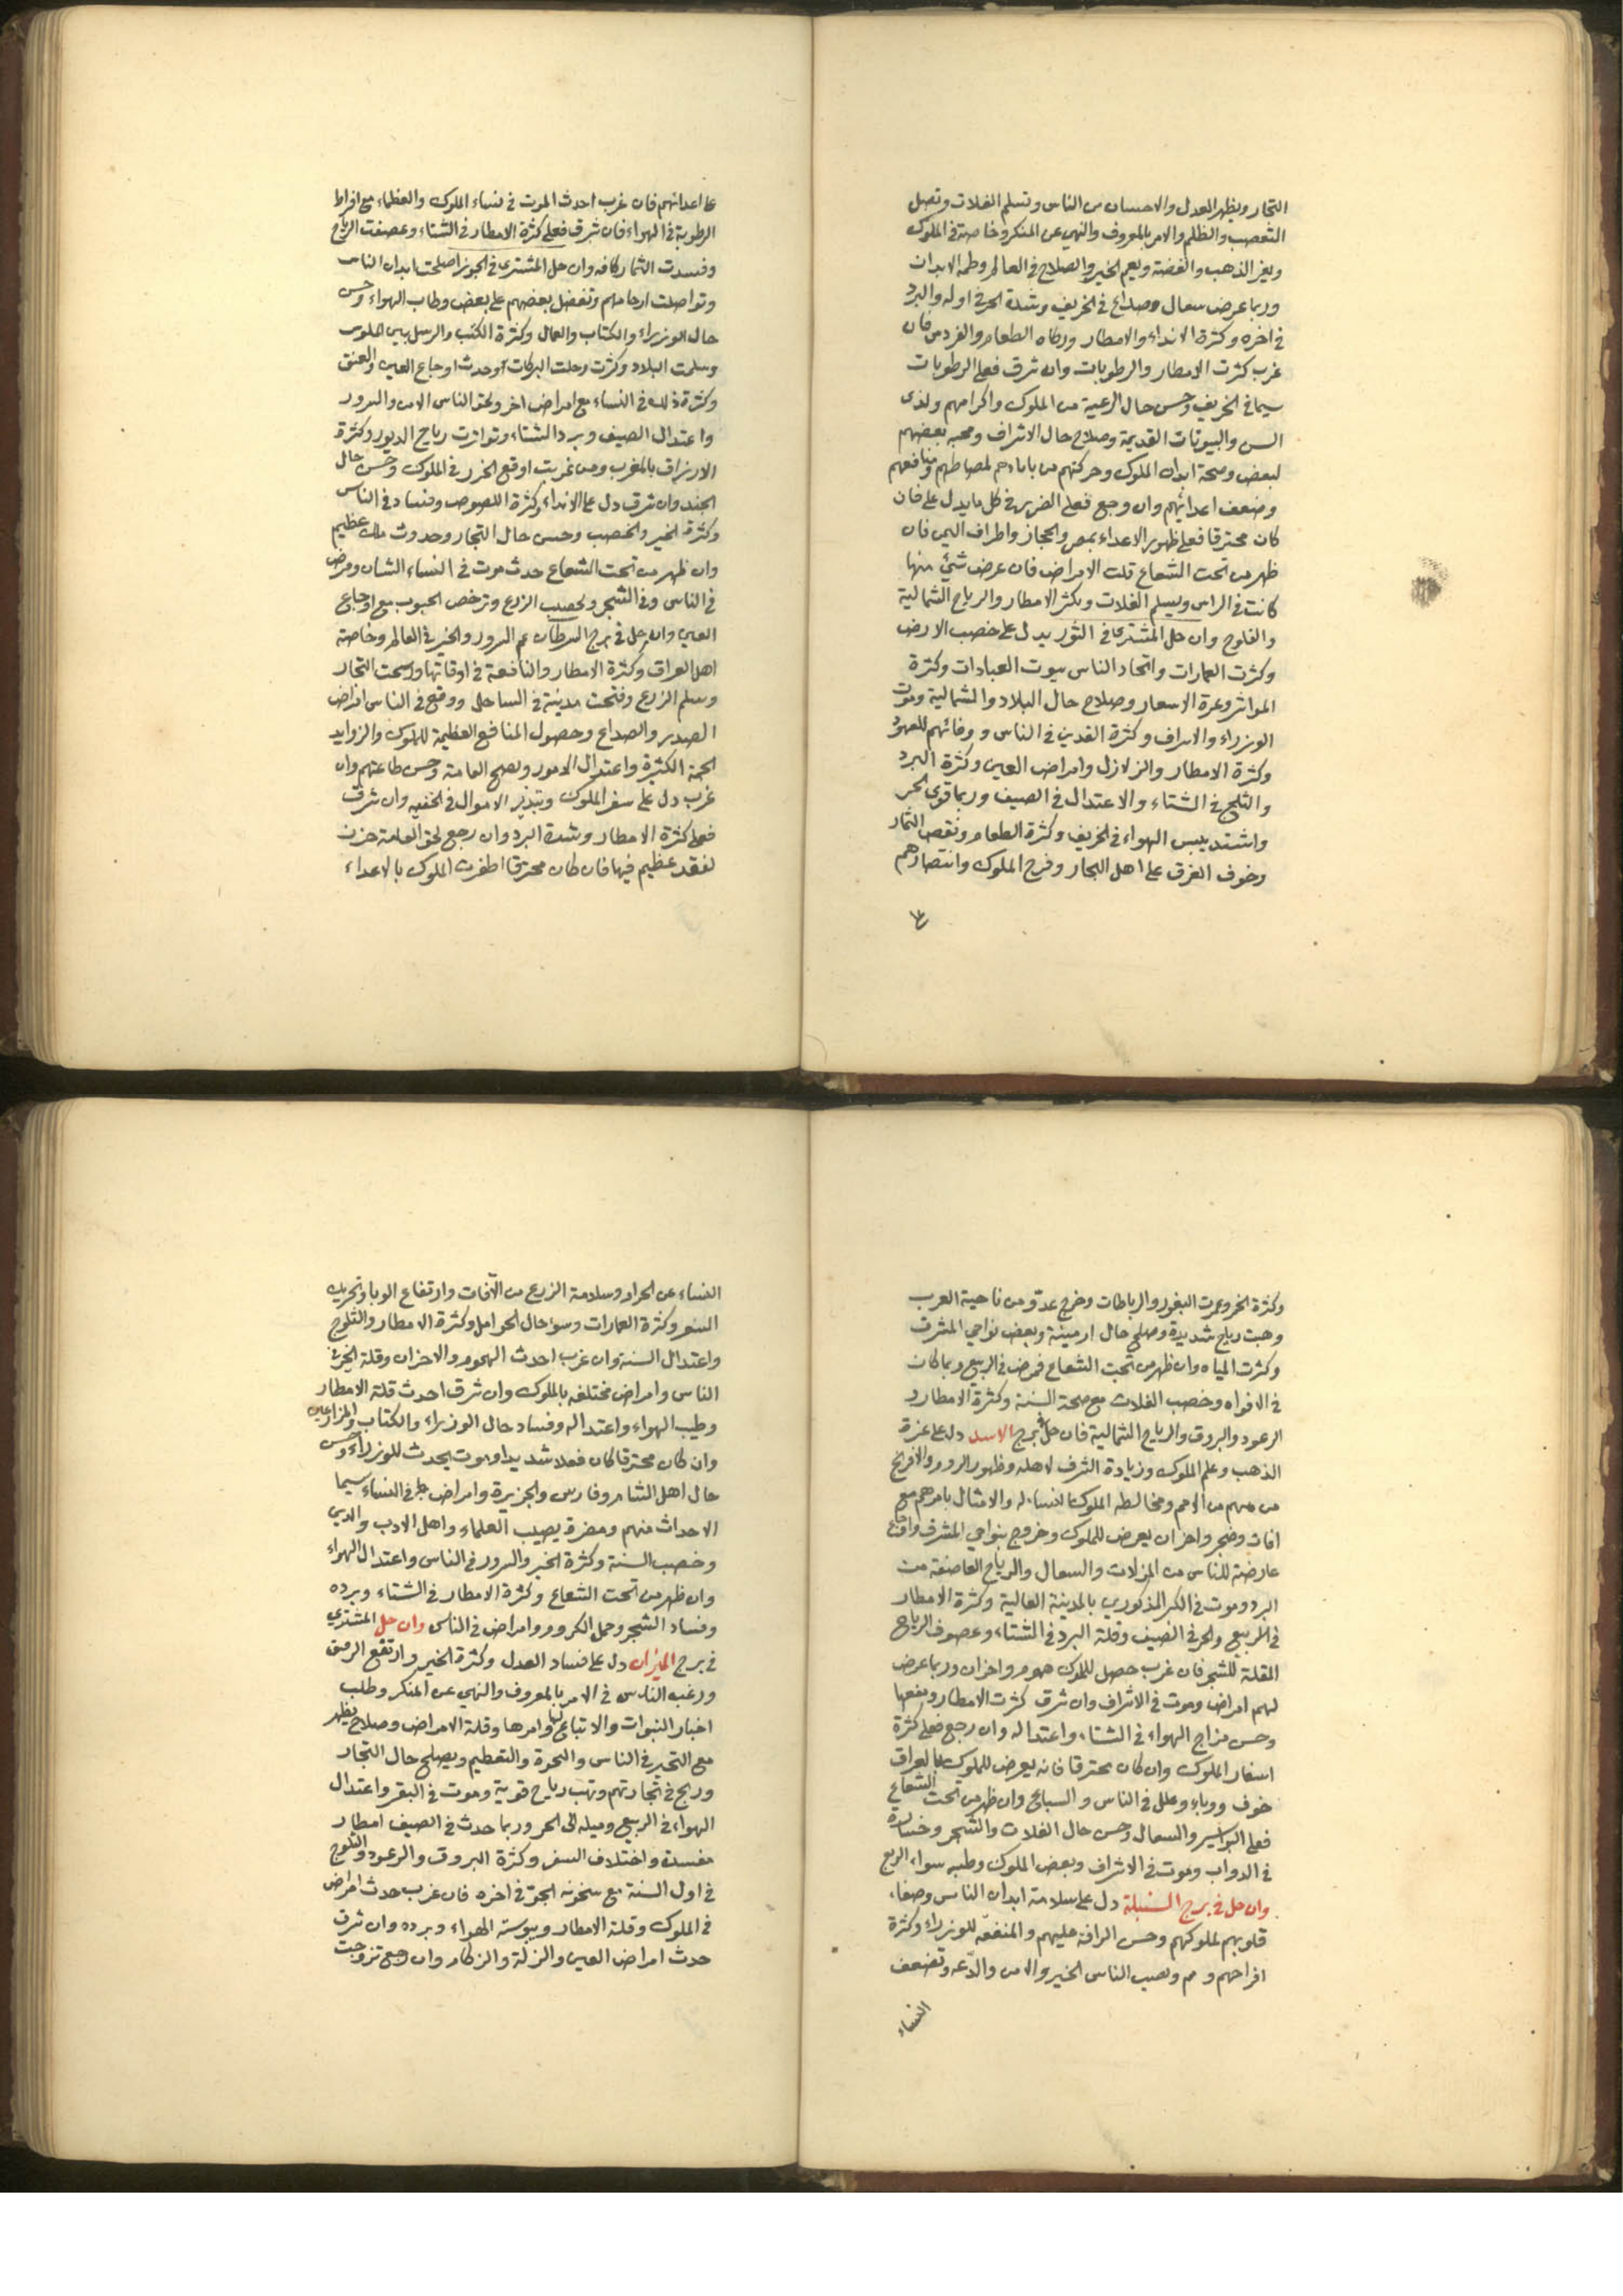 التجار ويظهر العدل والاحسان من الناس وتسلم الغلات وتصل
التعصب والظلم والامر بالمعروف والنهى عن المنكر وخاصة فى الملوك
ويعز الذهب والفضة ويعم الخير والصلاح فى العالم وطمه الابدان
وربما عرض سعال وصداع فى الخريف وشدة الحر فى اوله والبرد
فى اخره وكثرة الانداء والامطار وزكاه الطعام والفردس فان
غرب كثرت الامطار والرطوبات وان شرق فعلى الرطوبات
سيما فى الخريف وحسن حال الرعية من الملوك واكرامهم ولذى
السن والبيوتات القديمة وصلاح حال الاشراف ومحبه بعضهم
لبعض وصحة ابدان الملوك وحركتهم من بابادهم لمصالحهم ومنافعهم
وضعف اعدائهم وان رجع فعلى الضرر فى كل ما يدل على فان
كان محترقا فعلى ظهور الاعداء بمصر والحجاز واطراف اليمن فان
ظهر من تحت الشعاع قلت الامراض فان عرض شئ منها
كانت فى الراس ويسلم الغلات وبكثر الامطار والرياح الشمالية
والفلوح وان حل المشترى فى الثور يدل على خصب الارض
وكثرت العمارات واتحاد الناس بيوت العبادات وكثرة
المواشى وعزة الاسعار وصلاح حال البلاد والشمالية وموت
الوزراء والاشراف وكثرة القدين فى الناس و وفائهم للعهود
وكثرة الامطار والزلازل وامراض العين وكثرة البرد
والثلج فى الشتاء والاعتدال فى الصيف وربما قوى الحر
واشتد يبس الهواء فى الخريف وكثرة الطعام ونقص الثمار
وخوف الغرق على اهل البحار وفرح الملوك وانتصارهم
على
على اعدائهم فان غرب احدث الموت فى نساء الملوك والعظماء مع افراط
الرطوبة فى الهواء فان شرق فعلى كثرة الامطار فى الشتاء وعصفت الرياح
وفسدت الثمار كافه وان حل المشترى فى الجوزا صلحت ابدان الناس
وتواصلت ارحامهم وتفضل بعضهم على بعض وطاب الهواء وحسن
حال الوزراء والكتاب والعمال وكثرة الكتب والرسل بين الملوك
وسلمت البلاد وكثرت وحلت البركات وحدث اوجاع العين والعنق
وكثرة ذلك فى النساء مع امراض اخر ولحق الناس الامن والسرور
واعتدال الصيف وبرد الشتاء وتواترت رياح الدبور وكثرة
الارزاق بالمغرب ومن غربت اوقع الخزر فى الملوك وحسن حال
الجند وان شرق دل على الانداء وكثرة اللصوص وفساد فى الناس
وكثرة الخير والخصب وحسن حال التجار وحدوث ملك عظيم
وان ظهر من تحت الشعاع حدث موت فى النساء الشبان ومرض
فى الناس وفى الشجر ولخصب الزرع وترخص الحبوب مع اوجاع
العين وان حل فى برج السرطان عم السرور والخير فى العالم وخاصة
اهل العراق وكثرة الامطار والنافعة فى اوقاتها وربحت التجار
وسلم الزرع وفتحت مدينة فى الساحل ووقع فى الناس امراض
الصدر والصداع وحصول المنافع العظيمة للملوك والزوايد
الجمة الكثيرة واعتدال الامور وبصح العامة وحسن طاعتهم وان
غرب دل على سفر الملوك وتبذير الاموال فى الخفيه وان شرق
فعلى كثرة الامطار وشدة البرد وان رجع لحق العامة حزن
لفقد عظيم فيها فان كان محترقا اظفرت الملوك بالاعداء
وكثرة الخر وعمرت الثغور والرباطات وخرج عدو من ناحية العرب
وهبت رياح شديدة وصلح حال ارمينية وبعض نواحى المشرق
وكثرت المياه وان ظهر من تحت الشعاع فمرض فى الربيع وربما كان
فى الافواه وخصب الغلات مع صحة السنة وكثرة الامطار و
الرعود والبروق والرياح الشمالية فان حل فى برج الاسد دل على عزة
الذهب وعلم الملوك وزيادة الشرف لاهله وظهور الروم والافرنج
من منهم من الامم ومخالطه الملوك لنسائه والامثال بامرهم مع
افات وضجر واحزان يعرض للملوك وخروج بنواحى المشرق واوجاع
عارضة للناس من النزلات والسعال والرياح العاصفة من
البرد وموت فى الكر المذكورين بالمدينة العالية وكثرة الامطار
فى الربيع والحر فى الصيف وقلة البرد فى الشتاء وعصوف الرياح
المقلة للشجر فان غرب حصل للملوك هموم واحزان وربما عرض
لهم امراض وموت فى الاشراف وان شرق كثرت الامطار ونفعها
وحسن مزاج الهواء فى الشتاء واعتداله وان رجع فعلى كثرة
اسفار الملوك وان كان محترقا فانه يعرض للملوك بالعراق
خوف ووباء وعلل فى الناس والسباع وان ظهر من تحت الشعاع
فعلى البواسير والسعال وحسن حال الغلات والشجر وخسارة
فى الدواب وموت فى الاشراف وبعض الملوك وطيبه سواء الربع
وان حل فى برج السنبلة دل على سلامة ابدان الناس وصفاء
قلوبهم لملوكهم وحسن الرافة عليهم والمنفعه للوزراء وكثرة
افراحهم و م ونصب الناس الخير والامن والدعه وتضعف
النساء
النساء عن الحراد وسلامة الزرع من الافات وارتفاع الوبا وتحريك
السعر وكثرة العمارات وسوء حال الحوامل وكثرة الامطار والثلوج
واعتدال السنة وان غرب احدث الهموم والاحزان وقلة الخير فى
الناس وامراض مختلفه بالملوك وان شرق احدث قلة الامطار
وطيب الهواء واعتداله وفساد حال الوزراء والكتاب والمزارعين
وان كان محترقا كان فعلا شديدا وموت يحدث للوزراء وحسن
حال اهل الشام وفارس والجزيرة وامراض فى النساء سيما
الاحداث منهم ومضرة يصيب العلماء واهل الادب والدين
وخصب السنة وكثرة الخير والسرور فى الناس واعتدال الهواء
وان ظهر من تحت الشعاع وكثرة الامطار فى الشتاء وبرده
وفساد الشجر وحمل الكروم وامراض فى الناس وان حل المشترى
فى برج الميزان دل على فساد العدل وكثرة الخير وارتفع الرمق
ورغب الناس فى الامر بالمعروف والنهى عن المنكر وطلب
اخبار النبوات والاتباع لها وامرها وقلة الامراض وصلاح يظهر
مع التحير فى الناس والنحوة والتعظيم ويصلح حال التجار
وربح فى تجارتهم وتهب رياح قوية وموت فى البقر واعتدال
الهواء فى الربيع وميله الى الحر وربما حدث فى الصيف امطار
مفسدة واختلاف السفر وكثرة البروق والرعود والثلوج
فى اول السنة مع سخونه الجو فى اخره فان غرب حدث امراض
فى الملوك وقلة الامطار ويبوسة الهواء وبرده وان شرق
حدث امراض العين والنزلة والزكام وان رجع تزوجت